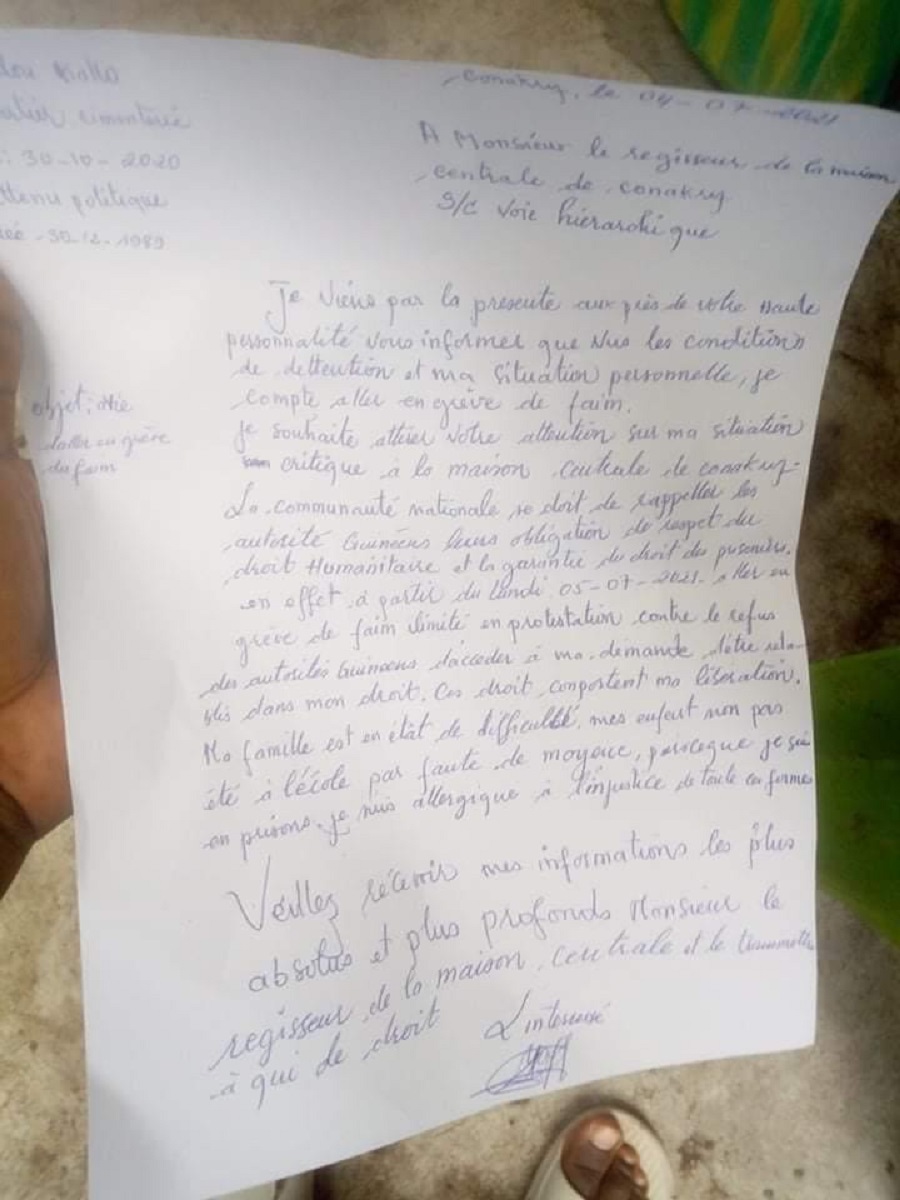 Conakry, le 04-07-2021
Diallo
cimenterie
: 30-10-2020
politique
-30.12.1989
A Monsieur le regisseur de la maison
centrale de conakry
S/C Voie hiérarchique
objet: Avie
daller en grève
du faim
Je viens par la presente auprès de votre haute
personnalité vous informer que Vus les conditions
de dettention et ma situation personnelle, je
compte aller en grève de faim.
je souhaite attirer votre attention sur ma situation
critique à la maison centrale de conakry.
La communauté nationale se doit de rappeller les
autorité Guinéens leurs obligation de respet du
droit Humanitaire et la garantie du droit des
en effet à partir du lundi 05-07-2021. aller en
grève de faim ilimité en protestation contre le refus
des autorités Guinéens d'acceder à ma demande d'être réta-
blis dans mon droit. Ces droit comportent ma libération.
Ma famille est en étât de difficulté, mes enfent non pas
été à l'école par faute de moyence, parceque je sui
en prisons. je suis allergique à l'injustice de toute ca forme
Veillez récevoir mes informations les plus
absolus et plus profonds Monsieur le
regisseur de la maison centrale et le
à qui de droit
L'interessé